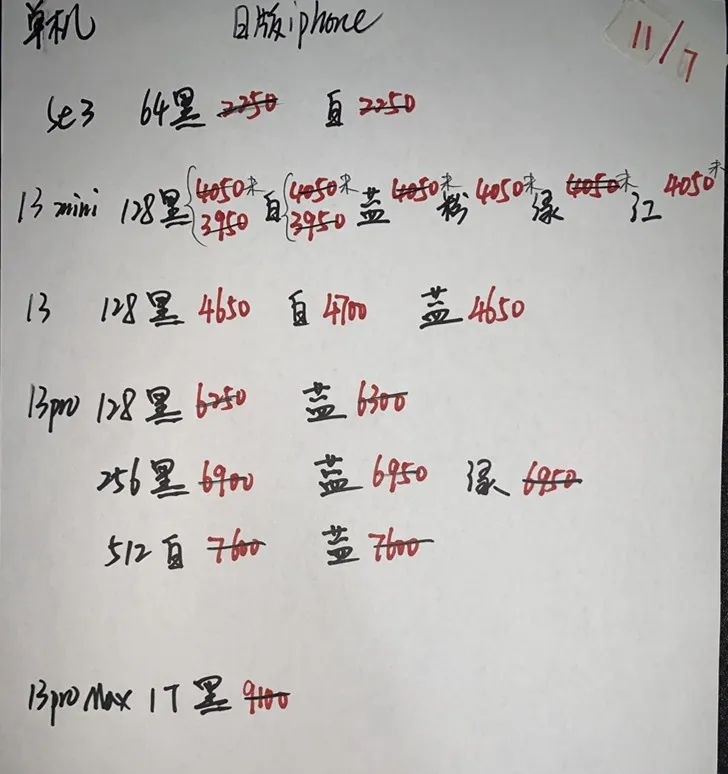 单机 日版iphone 11/7
se3 64黑 2250 白 2250
13 mini 128黑 4050未 3950 白 4050未 3950 蓝 4050未 粉 4050未 绿 4050未 红 4050未
13 128黑 4650 白 4700 蓝 4650
13pro 128黑 6250 蓝 6300
256黑 6900 蓝 6950 绿 6950
512白 7600 蓝 7600
13pro Max 1T 黑 9100